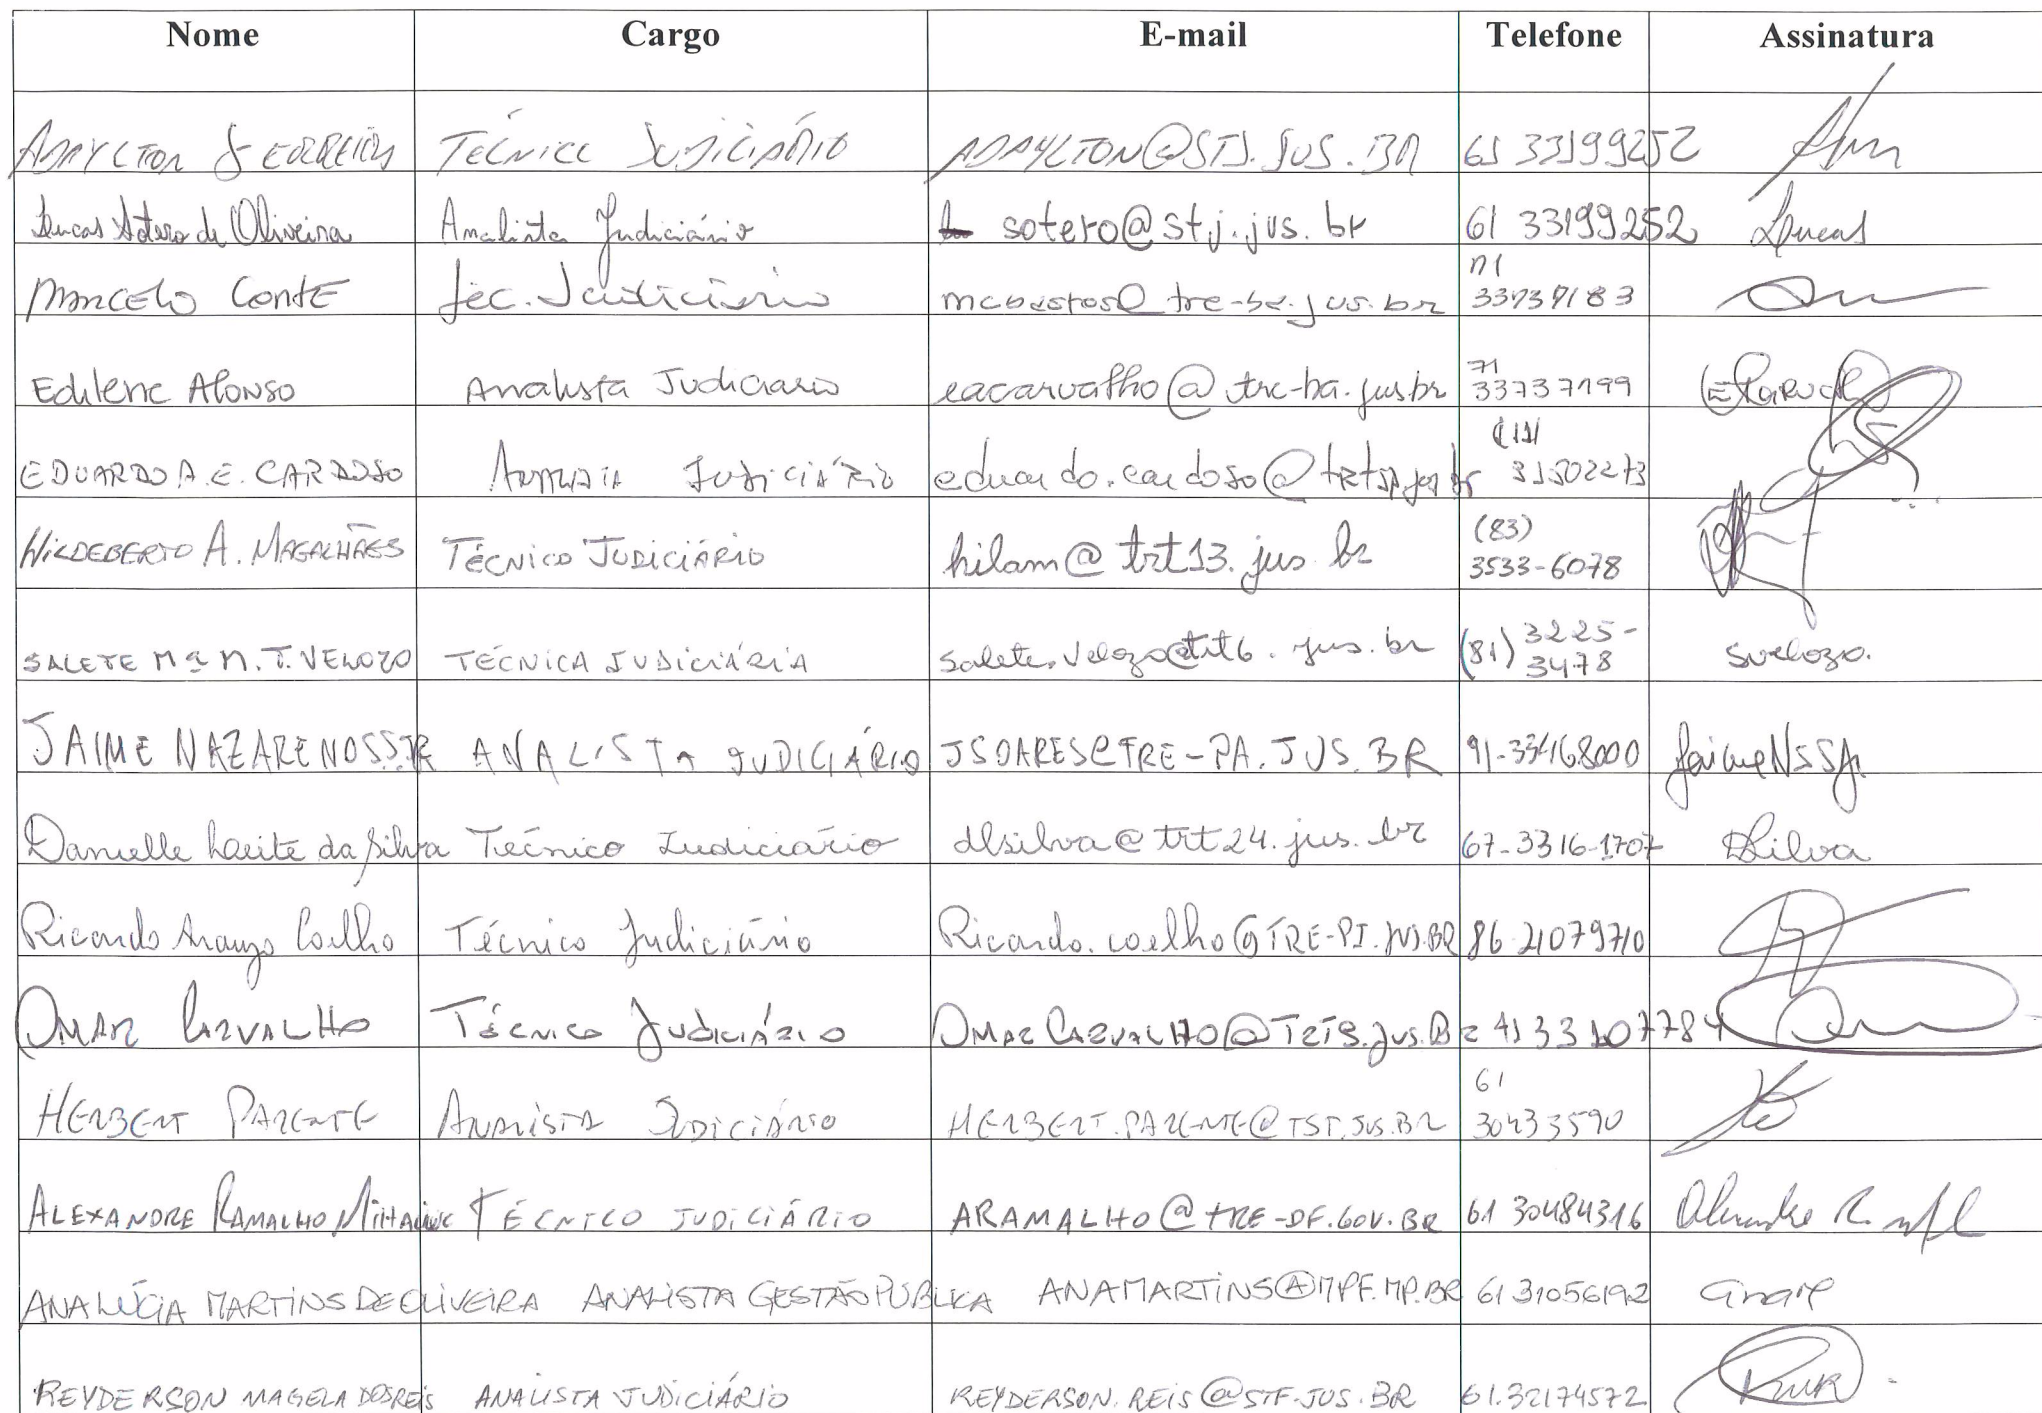 Nome Cargo E-mail Telefone Assinatura
ADAYLTON TÉCNICO JUDICIÁRIO ADAYLTON@STJ.JUS.BR 61 33199252
Lucas Sotero de Oliveira Analista Judiciário sotero@stj.jus.br 61 33199252 Lucas
71
Marcelo Conte Tec. Judiciário mcbastos@tre-ba.jus.br 33737183
71
Edilene Alonso Analista Judiciario eacarvalho@tre-ba.jus.br 33737199
(11)
EDUARDO A.E. CARDOSO JUDICIÁRIO eduardo.cardoso@trtsp.jus.br 31502273
(83)
HILDEBERTO A. MAGALHÃES TÉCNICO JUDICIÁRIO hilam@trt13.jus.br 3533-6078
SALETE Mª M. T. VELOZO TÉCNICA JUDICIÁRIA salete.velozo@trt6.jus.br (81) 3225-
3478 svelozo.
JAIME NAZARENO S S JR ANALISTA JUDICIÁRIO JSOARES@TRE-PA.JUS.BR 91-33468000 JaimeNSSJr
Danielle Leite da Silva Técnico Judiciário dlsilva@trt24.jus.br 67-3316-1707 DSilva
Ricardo Araujo Coelho Técnico Judiciário Ricardo.coelho@TRE-PI.JUS.BR 86-21079710
OMAR CARVALHO TÉCNICO JUDICIÁRIO 41 33107784
61
HERBERT PARENTE ANALISTA JUDICIÁRIO HERBERT.PARENTE@TST.JUS.BR 30433590
ALEXANDRE RAMALHO TÉCNICO JUDICIÁRIO ARAMALHO@TRE-DF.GOV.BR 61 30484316
ANA LÚCIA MARTINS DE OLIVEIRA ANALISTA GESTÃO PÚBLICA ANAMARTINS@MPF.MP.BR 61 31056192
REYDERSON MAGELA DOS REIS ANALISTA JUDICIÁRIO REYDERSON.REIS@STF.JUS.BR 61.32174572